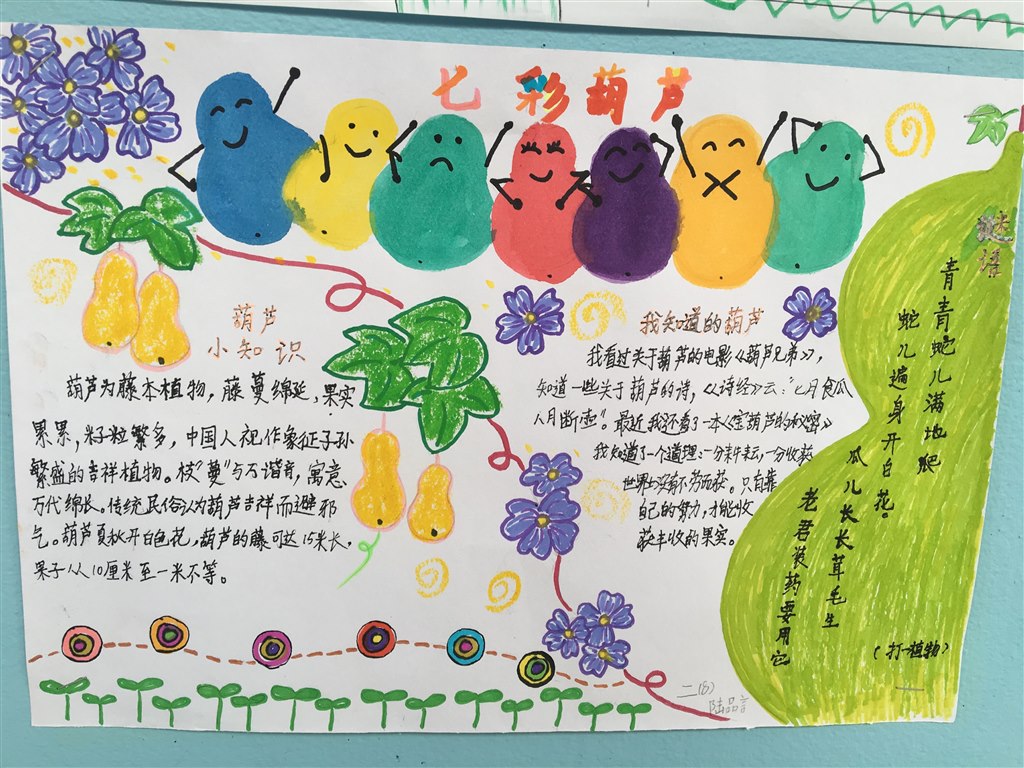 七彩葫芦
葫芦
小知识
葫芦为藤本植物，藤蔓绵延，果实
累累，籽粒繁多，中国人视作象征子孙
繁盛的吉祥植物。枝"蔓"与万谐音，寓意
万代绵长。传统民俗认为葫芦吉祥而避邪
气。葫芦夏秋开白色花，葫芦的藤可达15米长，
果子从10厘米至一米不等。
我知道的葫芦
我看过关于葫芦的电影《葫芦兄弟》，
知道一些关于葫芦的诗，《诗经》云："七月食瓜
八月断壶"。最近我还看了一本《宝葫芦的秘密》
我知道了一个道理：一分耕耘，一分收获
世界上没有不劳而获。只有靠
自己的努力，才能收
获丰收的果实。
谜语
青青蛇儿满地爬
蛇儿遍身开白花。
瓜儿长长茸毛生
老君装药要用它
（打一植物）
二(8)
陆品言